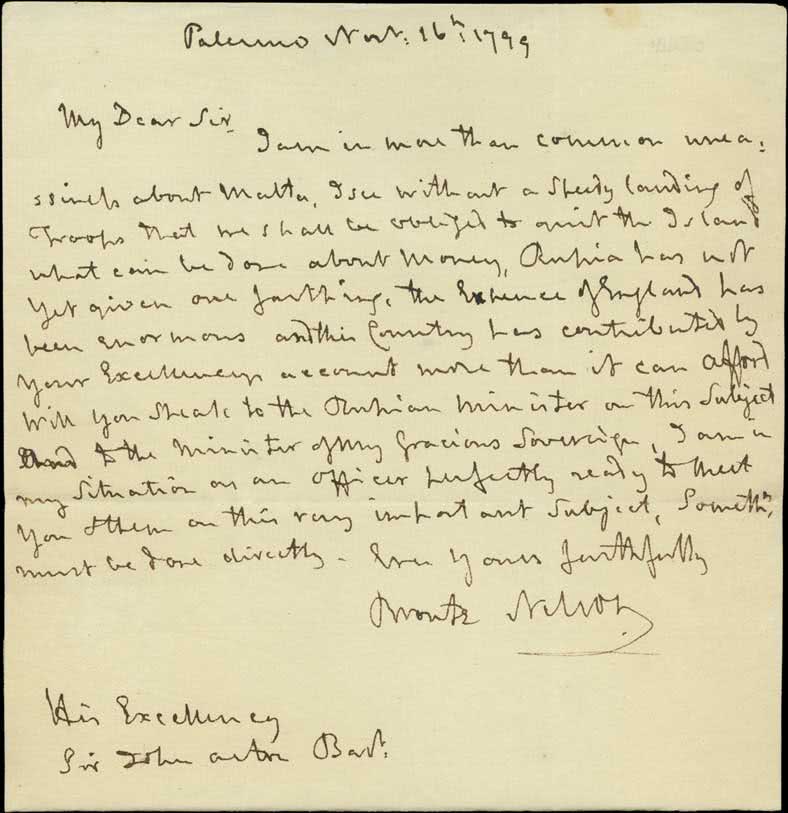 Palermo Novr: 16th: 1799
My Dear Sir
I am in more than common unea:
ssiness about Malta, I see without a speedy landing of
Troops that we shall be obliged to quit the Island
what can be done about Money, Russia has not
yet given one farthing, the Expence of England has
been enormous and this Country has contributed by
your Excellency's account more than it can afford
Will you speak to the Russian Minister on this subject
and to the Minister of My Gracious Sovereign, I am in
my situation as an officer perfectly ready to meet
You & them on this very important subject, Someth:
must be done directly - Ever Yours faithfully
Bronte Nelson
His Excellency
Sir John Acton Bart: